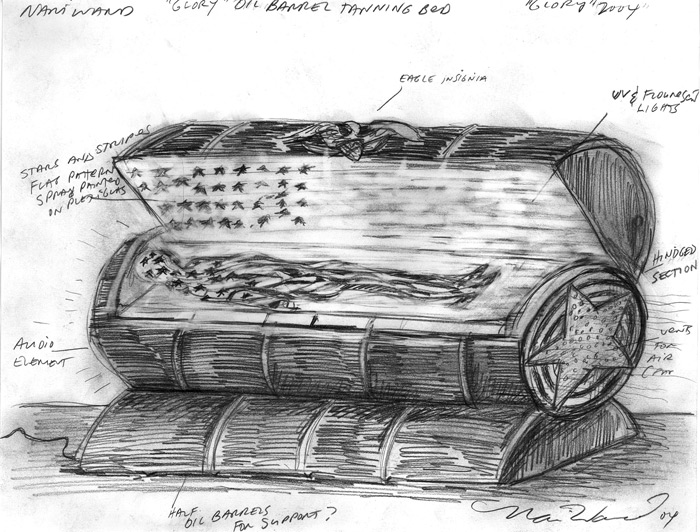 NARI WARD "GLORY" OIL BARREL TANNING BED "GLORY" 2004"
EAGLE INSIGNIA
UV & FLOURESENT
LIGHTS
STARS AND STRIPES
FLAG PATTERN
SPRAY PAINTED
ON PLEXIGLAS
HINDGED
SECTION
AUDIO
ELEMENT
VENTS
FOR
AIR
HALF
OIL BARRELS
FOR SUPPORT?
Nari Ward 04